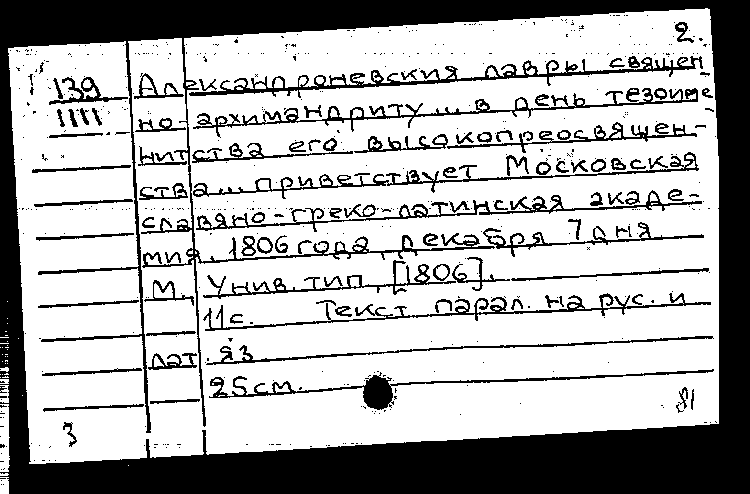 2.
139 Александроневския лавры священ
1111 но-архимандриту... в день тезоиме
нитства его высокопреосвящен-
ства... приветствует Московская
славяно-греко-латинская акаде-
мия. 1806 года, декабря 7 дня
М., Унив. тип., [1806].
11с. Текст парал. на рус. и
лат. яз.
25см.
3 81